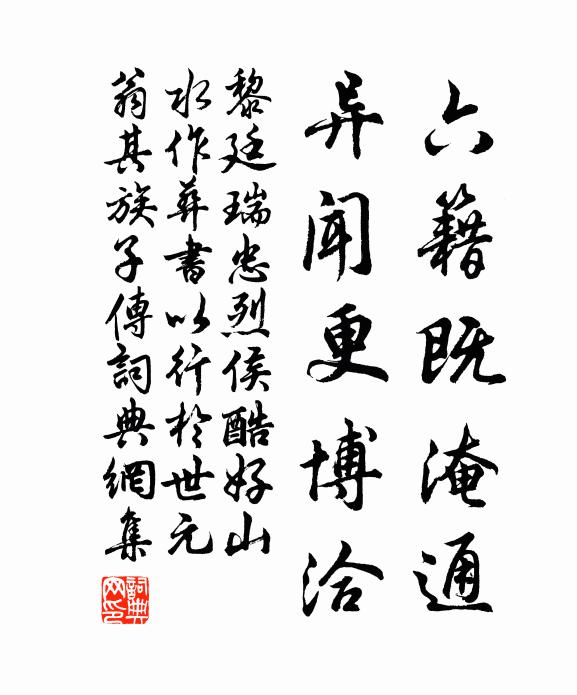 六籍既淹通
异闻更博洽
黎廷瑞忠烈侯酷好山
水作葬書以行於世元
翁其族子傳詞典網集
詞典
网印